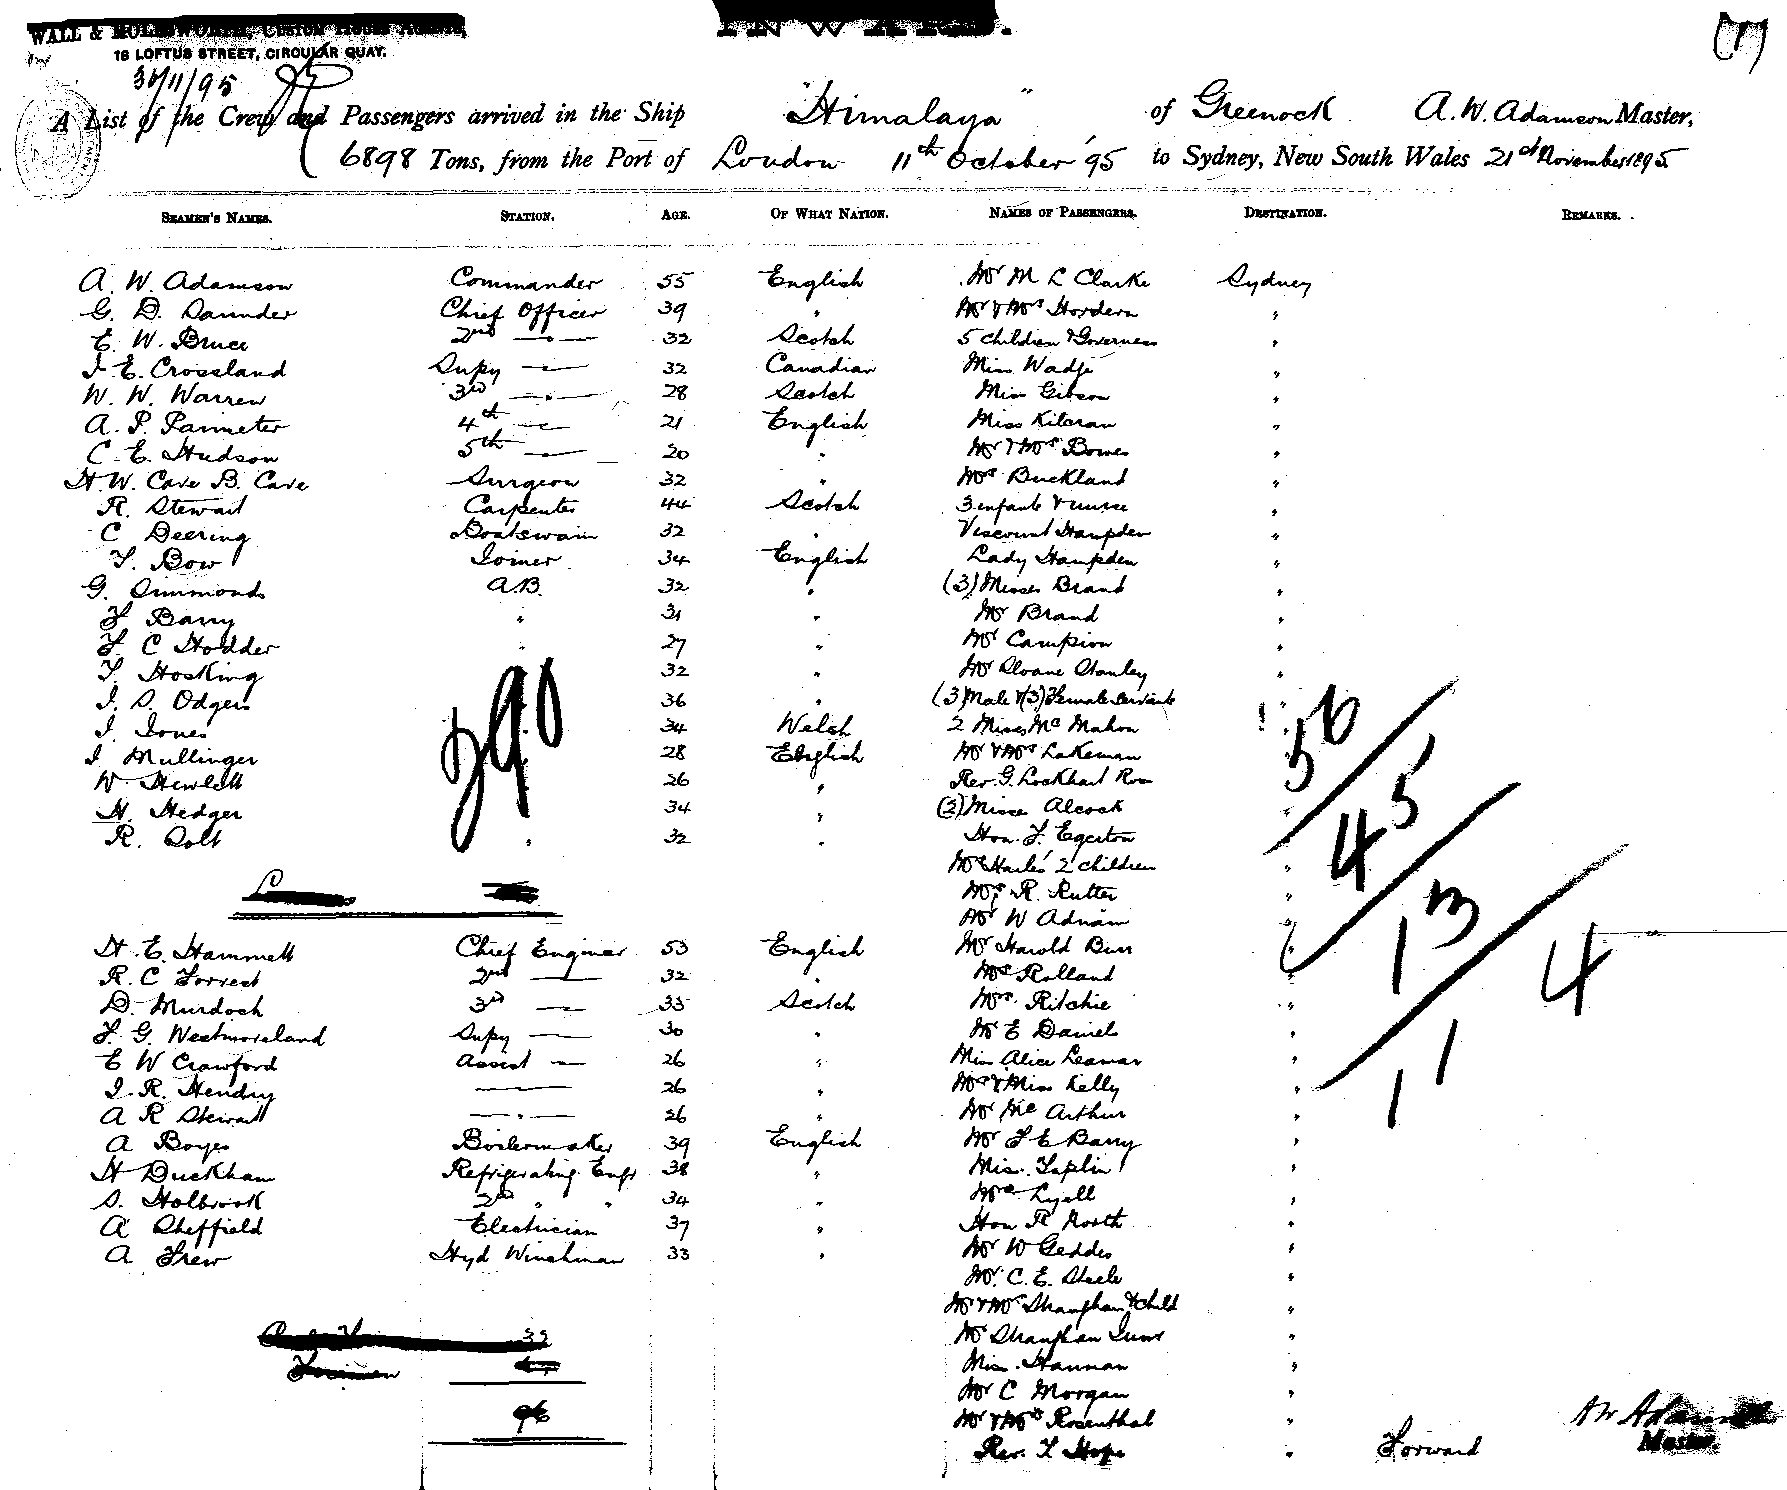 INWARD.
WALL & MOLESWORTH, CUSTOM HOUSE AGENTS,
16 LOFTUS STREET, CIRCULAR QUAY.
A List of the Crew and Passengers arrived in the Ship "Himalaya" of Greenock A. W. Adamson Master,
6898 Tons, from the Port of London 11th October '95 to Sydney, New South Wales 21st November 1895
SEAMEN'S NAMES. STATION. AGE. OF WHAT NATION. NAMES OF PASSENGERS. DESTINATION. REMARKS.
A. W. Adamson Commander 55 English Mr M L Clarke Sydney
G. D. Saunder Chief Officer 39 " Mr & Mrs Hordern "
E. W. Bruce 2nd — " — 32 Scotch 5 children & Governess "
J. E. Crossland Supy — 32 Canadian Miss Wadge "
W. W. Warren 3rd — " — 28 Scotch Miss Gibson "
A. P. Parmeter 4th — 21 English Miss "
C. E. Hudson 5th — 20 " Mr & Mrs Bowes "
H. W. Cave B. Cave Surgeon 32 " Mrs Buckland "
R. Stewart Carpenter 44 Scotch 3 infants & nurse "
C Deering Boatswain 32 " Viscount Hampden "
T. Bow Joiner 34 English Lady Hampden "
G. Simmonds A.B. 32 " (3) Misses Brand "
J Barry " 31 " Mr Brand "
F. C Hodder " 27 " Mr Campion "
T. Hosking 32 " Mr Sloane Stanley "
J. S. Odgers 36 " (3) Male & (3) Female Servants "
J. Jones 34 Welch 2 Misses Mc Mahon "
J Mullinger 28 English Mr & Mrs Lakeman "
W. Hewlett 26 " Rev. G. Lockhart Ross
H. Hedger 34 " (2) Misses Alcock "
R. Solt " 32 " Hon. F. Egerton
2 children "
Mrs R. Rutter "
Mr W Adnam "
H. E. Hammett Chief Engineer 53 English Mr Harold Burr
R. C Forrest 2nd — 32 " Mrs Rolland
D. Murdoch 3rd — 33 Scotch Mrs. Ritchie "
F. G. Westmoreland Supy — 30 " Mr E Daniel "
E W Crawford Assist — 26 " Miss Alice Leaman "
J. R. Hendry — 26 " Mrs & Miss Kelly "
A R Stewart — " — 26 " Mr Mc Arthur "
A Boyes Boilermaker 39 English Mr F E Barry "
H Duckham Refrigerating Engr 38 " Miss Taplin "
S. Holbrook 2nd " " 34 " Mrs Lyell "
A Sheffield Electrician 37 " Hon R North "
A Frew Hyd Winchman 33 " Mr W Geddes "
Mr. C. E. Steele "
Mr & Mrs Straughan & child "
Mr Straughan Junr "
Miss Hannan "
Mr C Morgan "
Mr & Mrs Rosenthal "
Rev. T Hope " Forward
33
96
56
45
13
11
4
Master.